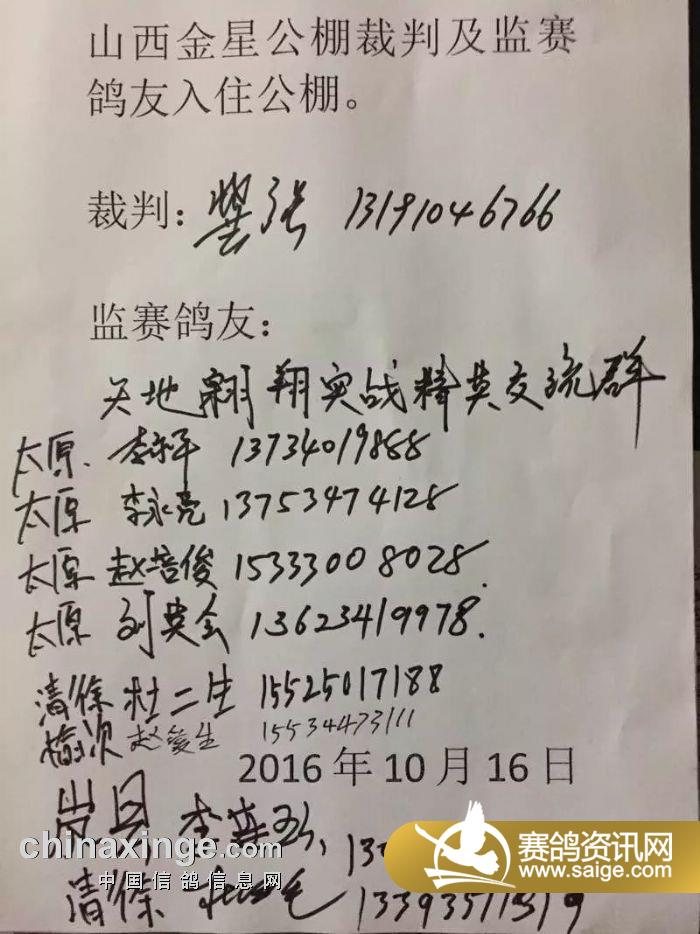 山西金星公棚裁判及监赛
鸽友入住公棚。
裁判: 13191046766
监赛鸽友:
天地翱翔实战精英交流群
太原. 李和平 13734019888
太原 李永亮 13753474128
太原 赵培俊 15333008028.
太原 刘英会 13623419978.
清徐 杜二生 15525017188
榆次 赵俊生 15534473111
2016年10月16日
岚县 李
清徐
chinaxinge.com
中国信鸽信息网
赛鸽资讯网
www.saige.com